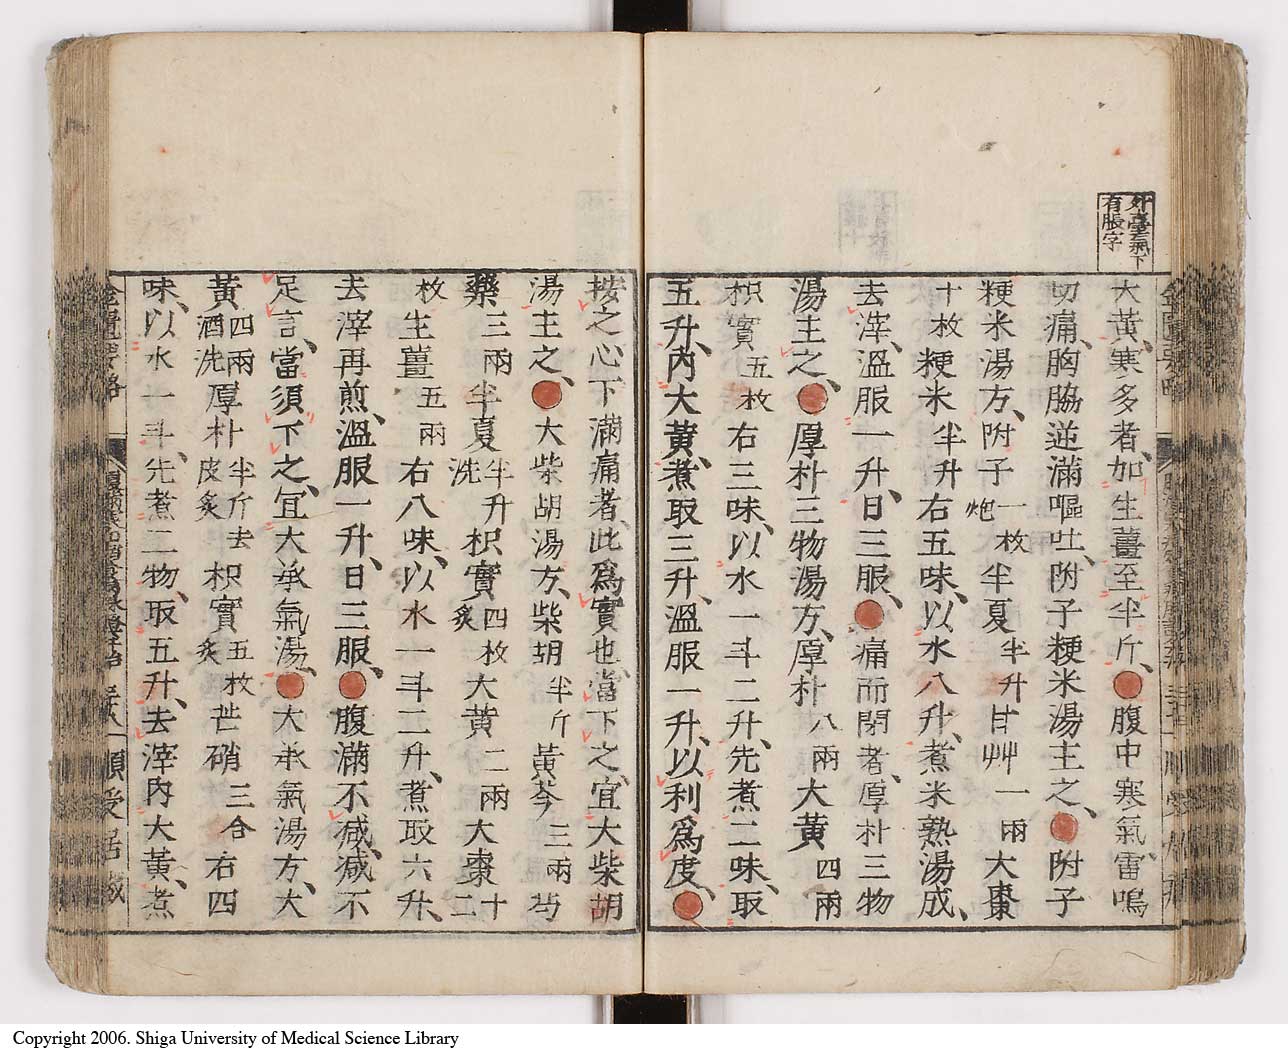 外臺氣下
有脹字
大黃、寒多者、加生薑至半斤、腹中寒氣、雷鳴
切痛、胸脇逆滿嘔吐、附子粳米湯主之、附子
粳米湯方、附子一枚炮半夏半升甘艸一兩大棗
十枚粳米半升右五味、以水八升、煮米熟湯成、
去滓、溫服一升、日三服、痛而閉者、厚朴三物
湯主之、厚朴三物湯方、厚朴八兩大黃四兩
枳實五枚右三味、以水一斗二升、先煮二味、取
五升、內大黃、煮取三升、溫服一升、以利爲度、
按之、心下滿痛者、此爲實也、當下之、宜大柴胡
湯主之、大柴胡湯方、柴胡半斤黃芩三兩芍
藥三兩半夏半升洗枳實四枚炙大黃二兩大棗十二
枚生薑五兩右八味、以水一斗二升、煮取六升、
去滓再煎、溫服一升、日三服、腹滿不減、減不
足言、當須下之、宜大承氣湯、大承氣湯方、大
黃四兩酒洗厚朴半斤去皮炙枳實五枚炙芒硝三合右四
味、以水一斗、先煮二物、取五升、去滓內大黃、煮
Copyright 2006. Shiga University of Medical Science Library